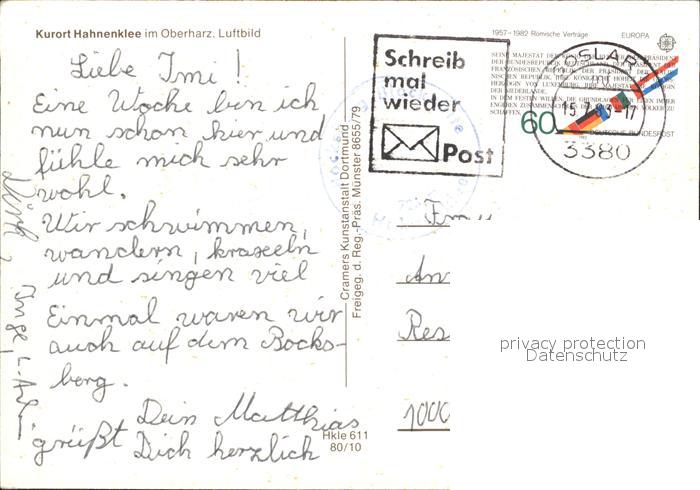 Kurort Hahnenklee im Oberharz. Luftbild
Liebe Imi!
Eine Woche bin ich
nun schon hier und
fühle mich sehr
wohl.
Wir schwimmen,
wandern, kraxeln
und singen viel
Einmal waren wir
auch auf dem Bocks-
berg.
Dein Matthias
grüßt Dich herzlich
Cramers Kunstanstalt Dortmund
Freigeg. d. Reg.-Präs. Münster 8655/79
Hkle 611
80/10
Schreib
mal
wieder
Post
1957-1982 Römische Verträge
EUROPA
60
DEUTSCHE BUNDESPOST
GOSLAR
3380
An
Res
1000
privacy protection
Datenschutz